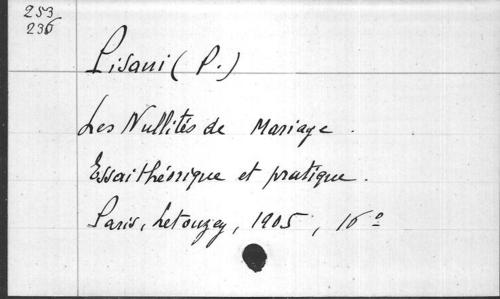 253
236
Pisani (P.)
Les Nullités de Mariage.
Essai théorique et pratique.
Paris, Letouzey, 1905, 16º